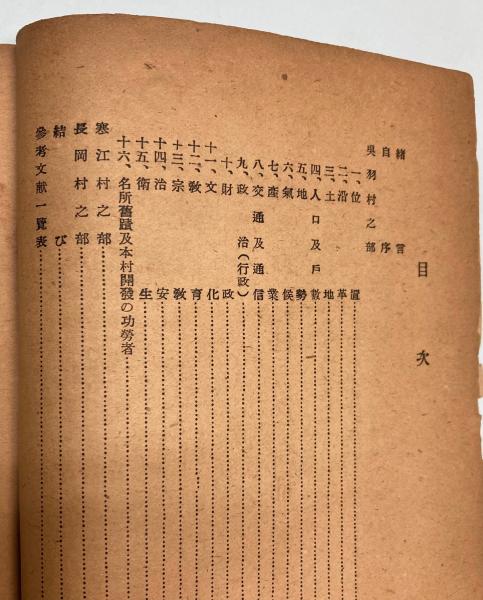 目次
緒言
自序
吳羽村之部
一、位置
二、沿革
三、土地
四、人口及戶數
五、地勢
六、氣候
七、產業
八、交通及通信
九、政治(行政)
十、財政
十一、文化
十二、教育
十三、宗教
十四、治安
十五、衛生
十六、名所舊蹟及本村開發の功勞者
寒江村之部
長岡村之部
結び
參考文献一覽表